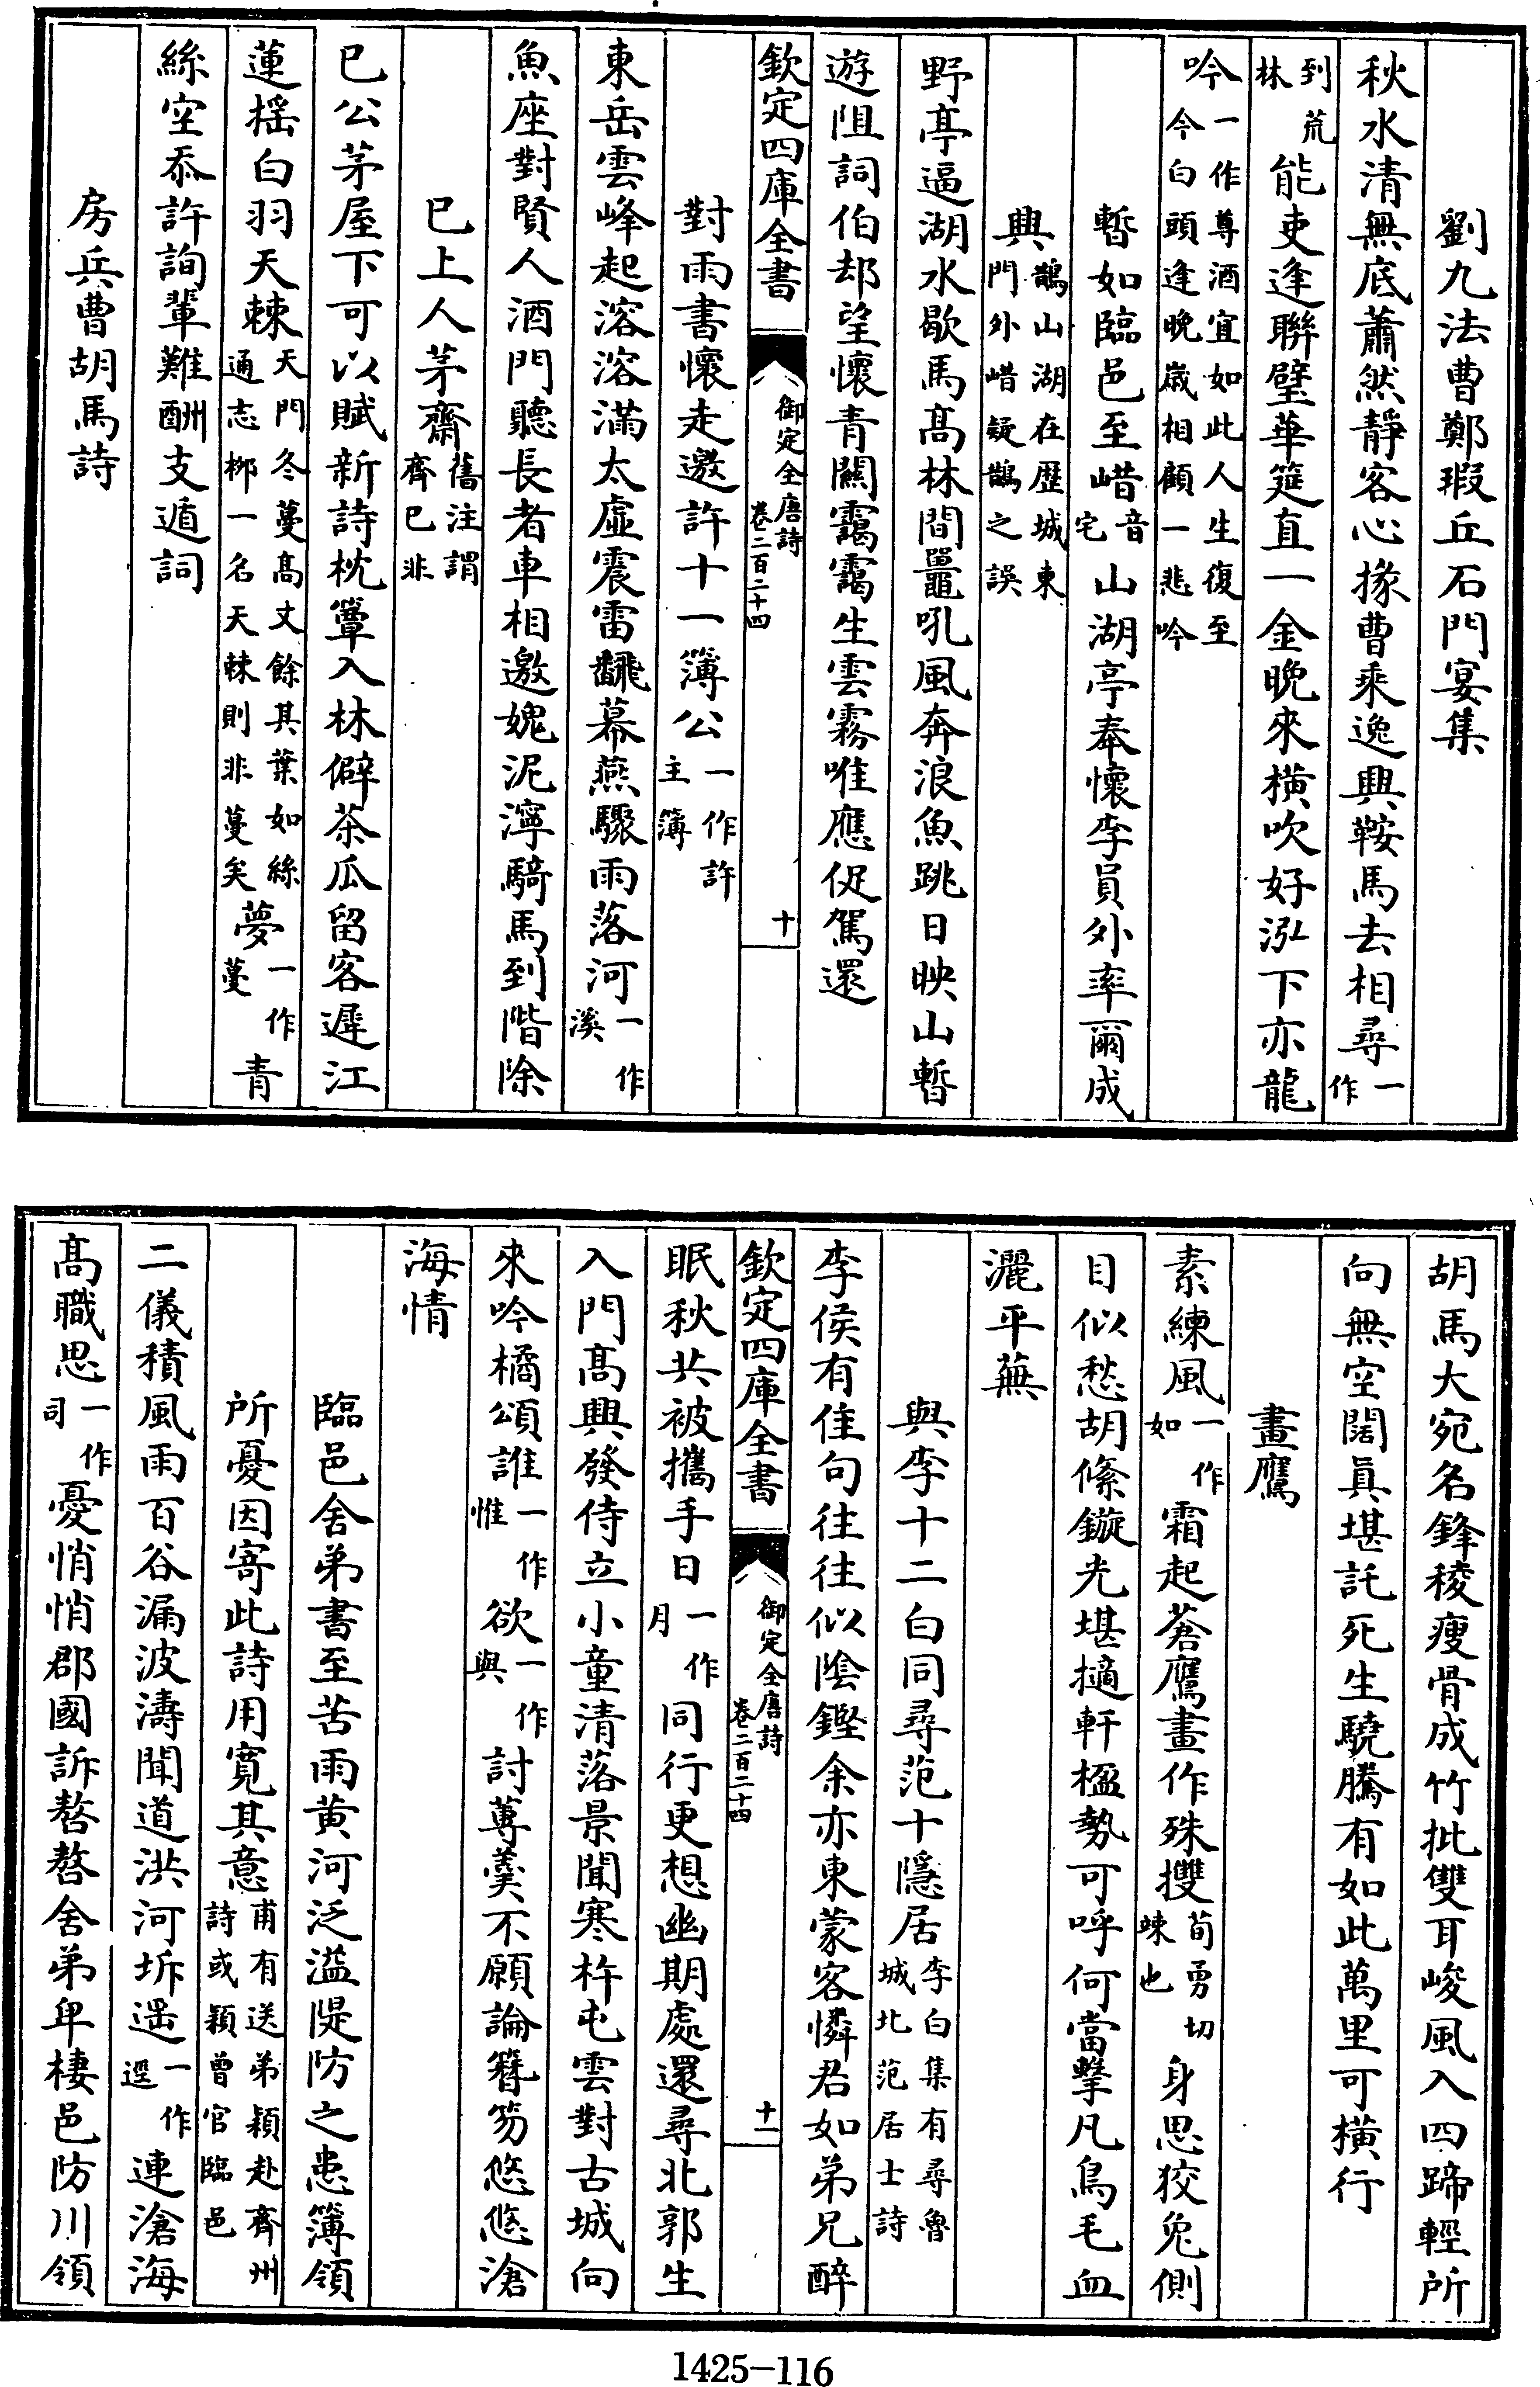 劉九法曹鄭瑕丘石門宴集
秋水清無底蕭然靜客心掾曹乘逸興鞍馬去相尋一作
到荒林能吏逢聯璧華筵直一金晚來橫吹好泓下亦龍
吟一作尊酒宜如此人生復至今白頭逢晚歲相顧一悲吟
暫如臨邑至㟙音宅山湖亭奉懷李員外率爾成
興鵲山湖在歴城東門外㟙疑鵲之誤
野亭逼湖水歇馬髙林間鼉吼風奔浪魚跳日映山暫
遊阻詞伯却望懷青關靄靄生雲霧唯應促駕還
欽定四庫全書
御定全唐詩
卷二百二十四
十
對雨書懷走邀許十一簿公一作許主簿
東岳雲峰起溶溶滿太虛震雷飜幕燕驟雨落河一作溪
魚座對賢人酒門聽長者車相邀媿泥濘騎馬到階除
巳上人茅齋舊注謂齊已非
巳公茅屋下可以賦新詩枕簟入林僻茶瓜留客遲江
蓮揺白羽天棘天門冬蔓髙丈餘其葉如絲通志栁一名天棘則非蔓矣夢一作蔓青
絲空忝許詢輩難酬支遁詞
房兵曹胡馬詩
胡馬大宛名鋒稜瘦骨成竹批雙耳峻風入四蹄輕所
向無空闊真堪託死生驍騰有如此萬里可橫行
畫鷹
素練風一作如霜起蒼鷹畫作殊㩳荀勇切竦也身思狡兔側
目似愁胡絛鏇光堪擿軒楹勢可呼何當擊凡鳥毛血
灑平蕪
與李十二白同尋范十隱居李白集有尋魯城北范居士詩
李侯有佳句往往似陰鏗余亦東蒙客憐君如弟兄醉
欽定四庫全書
御定全唐詩
卷二百二十四
十一
眠秋共被攜手日一作月同行更想幽期處還尋北郭生
入門髙興發侍立小童清落景聞寒杵屯雲對古城向
來吟橘頌誰一作惟欲一作與討蓴羹不願論簪笏悠悠滄
海情
臨邑舍弟書至苦雨黄河泛溢隄防之患簿領
所憂因寄此詩用寬其意甫有送弟潁赴齊州詩或潁曾官臨邑
二儀積風雨百谷漏波濤聞道洪河坼遥一作逕連滄海
髙職思一作司憂悄悄郡國訴嗸嗸舍弟卑棲邑防川領
1425-116